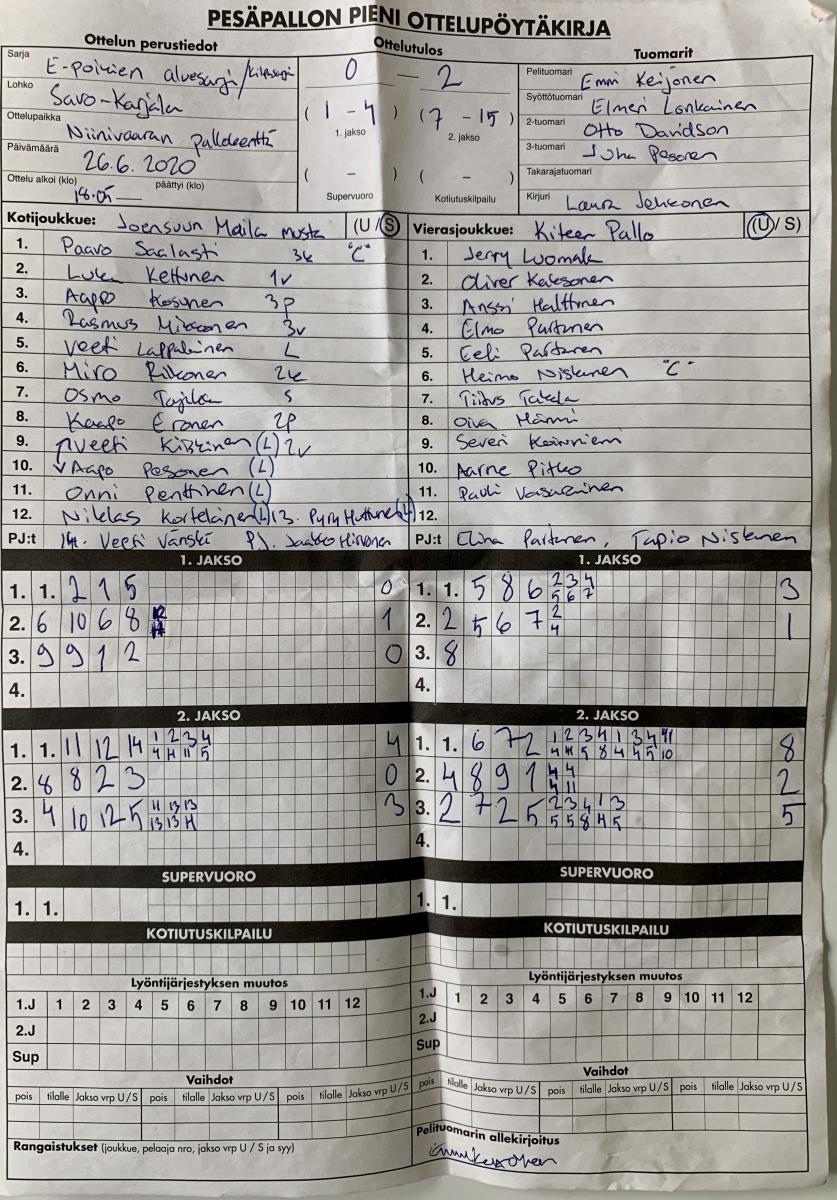 PESÄPALLON PIENI OTTELUPÖYTÄKIRJA
Ottelun perustiedot
Sarja
E-poikien aluesarja/kilpasarja
Lohko
Savo-Karjala
Ottelupaikka
Niinivaaran
Päivämäärä
26.6.2020
Ottelu alkoi (klo) päättyi (klo)
18.05 -
Ottelutulos
0 — 2
(1 - 4) (7 - 15)
1. jakso 2. jakso
( - ) ( - )
Supervuoro Kotiutuskilpailu
Tuomarit
Pelituomari Emmi Keijonen
Syöttötuomari Elmeri Lonkainen
2-tuomari Otto Davidson
3-tuomari Juha Pesonen
Takarajatuomari
Kirjuri Laura
Kotijoukkue: Joensuun Maila musta (U/S)
1. Paavo Saalasti 3k "C"
2. Luka Kettunen 1v
3. Aapo Kosunen 3p
4. Rasmus Mikkonen 3v
5. Veeti Lappalainen L
6. Miro Riikonen 2k
7. Osmo S
8. Kaapo Eronen 2p
9. Veeti (L) 2v
10. Aapo Pesonen (L)
11. Onni Penttinen (L)
12. Niklas Kortelainen (L) 13. Pyry Huttunen (L)
PJ:t 14. Veeti Vänskä PJ. Jaakko Hirvonen
Vierasjoukkue: Kiteen Pallo (U/S)
1. Jerry Luomala
2. Oliver
3. Anssi Halttunen
4. Elmo Partanen
5. Eeli Partanen
6. Heimo Niskanen "C"
7. Tiitus Takala
8. Oiva Hänni
9. Severi
10. Aarne Pitko
11. Pauli
12.
PJ:t Elina Partanen, Tapio Niskanen
1. JAKSO
1. 1. 2 1 5 0
2. 6 10 6 8 1
3. 9 9 1 2 0
4.
1. JAKSO
1. 1. 5 8 6 2 3 4 3
5 6 7
2. 2 5 6 7 2 1
4
3. 8
4.
2. JAKSO
1. 1. 11 12 14 1 2 3 4 4
4 11 11 5
2. 8 8 2 3 0
3. 4 10 12 5 11 13 13 3
13 13 14
4.
2. JAKSO
1. 1. 6 7 2 1 2 3 4 1 3 4 11 8
4 11 5 8 4 4 5 10
2. 4 8 9 1 4 4 2
4 11
3. 2 7 2 5 2 3 4 1 3 5
5 5 8 11 5
4.
SUPERVUORO
1. 1.
SUPERVUORO
1. 1.
KOTIUTUSKILPAILU
KOTIUTUSKILPAILU
Lyöntijärjestyksen muutos
1.J 1 2 3 4 5 6 7 8 9 10 11 12
2.J
Sup
Lyöntijärjestyksen muutos
1.J 1 2 3 4 5 6 7 8 9 10 11 12
2.J
Sup
Vaihdot
pois tilalle Jakso vrp U/S pois tilalle Jakso vrp U/S pois tilalle Jakso vrp U/S
Vaihdot
pois tilalle Jakso vrp U/S pois tilalle Jakso vrp U/S pois tilalle Jakso vrp U/S
Rangaistukset (joukkue, pelaaja nro, jakso vrp U / S ja syy)
Pelituomarin allekirjoitus